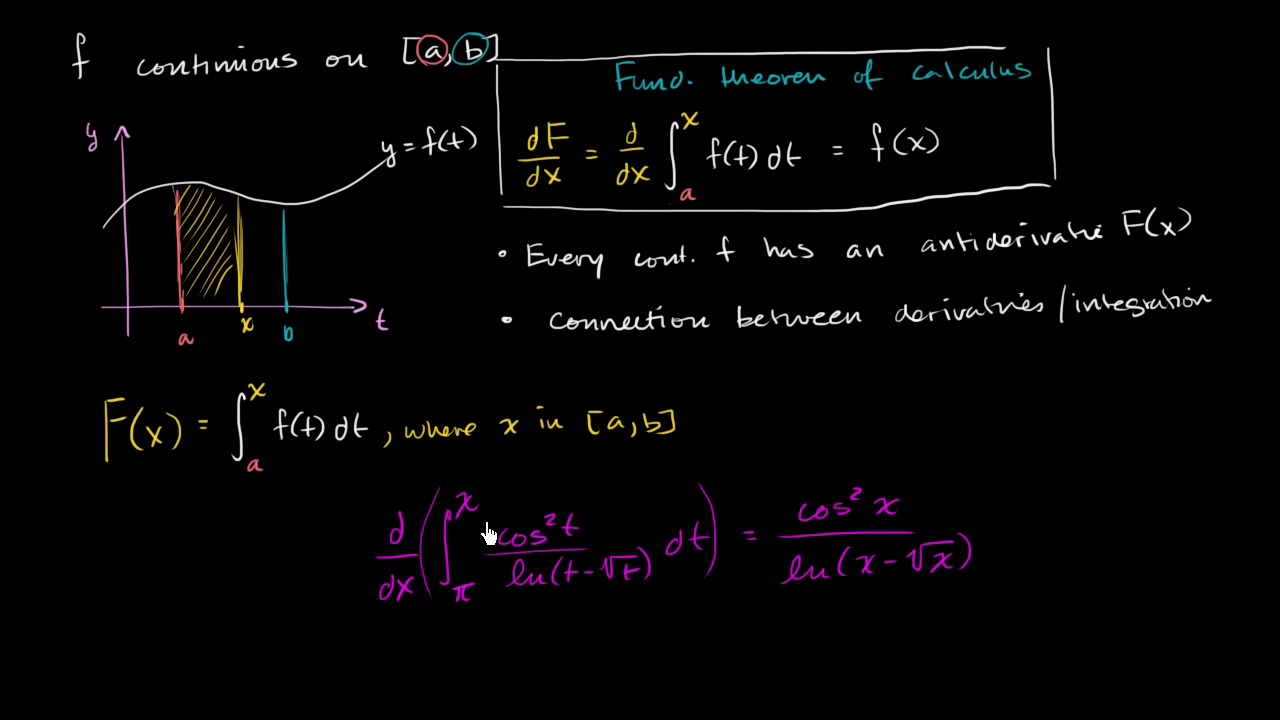 f continuous on [a, b]
Fund. theorem of calculus
dF/dx = d/dx ∫_a^x f(t) dt = f(x)
y
y = f(t)
a x b t
• Every cont. f has an antiderivative F(x)
• Connection between derivatives/integration
F(x) = ∫_a^x f(t) dt, where x in [a, b]
d/dx (∫_π^x cos²t / ln(t-√t) dt) = cos²x / ln(x-√x)